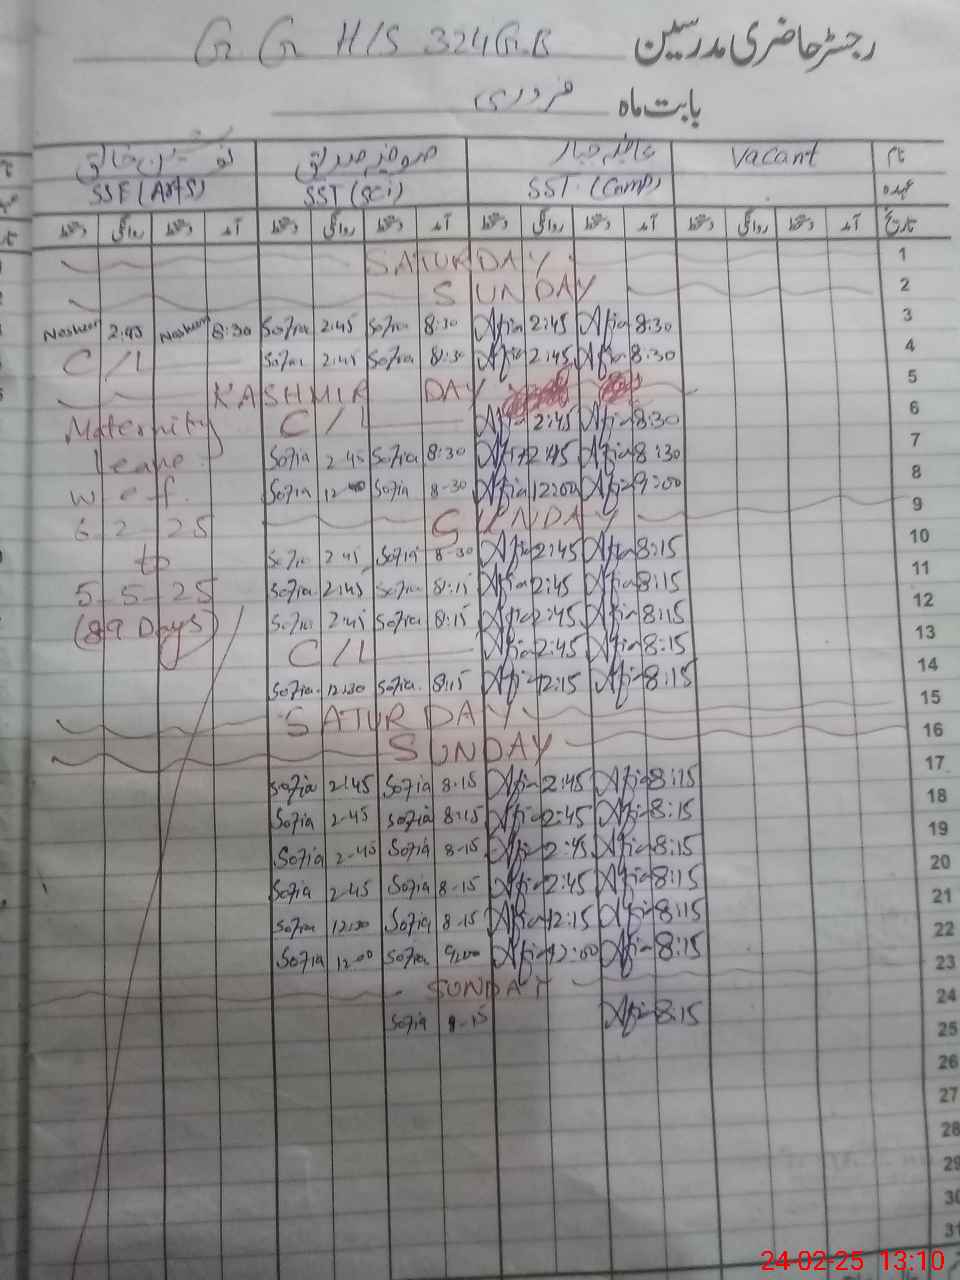 رجسٹر حاضری مدرسین G G H/S 324 G.B
بابت ماہ فروری
نام Vacant
عہدہ SST (Comp) SST (Sci) SSE (Arts)
تاریخ آمد دستخط روانگی دستخط آمد دستخط روانگی دستخط آمد دستخط روانگی دستخط آمد دستخط روانگی دستخط
SATURDAY 1
SUNDAY 2
2:45 8:30 Sofia 2:45 Sofia 8:30 Afia 2:45 Afia 8:30 3
C/L Sofia 2:45 Sofia 8:30 Afia 2:45 Afia 8:30 4
KASHMIR DAY 5
Maternity C/L Afia 2:45 Afia 8:30 6
leave Sofia 2 45 Sofia 8:30 Afia 2:45 Afia 8:30 7
w e f. Sofia 12 Sofia 8-30 Afia 12:00 Afia 9:00 8
6 2 25 SUNDAY 9
to Sofia 2 45 Sofia 8-30 Afia 2:45 Afia 8:15 10
5 5 25 Sofia 2:45 Sofia 8:15 Afia 2:45 Afia 8:15 11
(89 Days) Sofia 2:45 Sofia 8:15 Afia 2:45 Afia 8:15 12
C/L Afia 2:45 Afia 8:15 13
Sofia 12:30 Sofia 8:15 Afia 12:15 Afia 8:15 14
SATURDAY 15
SUNDAY 16
Sofia 2:45 Sofia 8:15 Afia 2:45 Afia 8:15 17
Sofia 2-45 Sofia 8:15 Afia 2:45 Afia 8:15 18
Sofia 2-45 Sofia 8-15 Afia 2:45 Afia 8:15 19
Sofia 2-45 Sofia 8-15 Afia 2:45 Afia 8:15 20
Sofia 12:30 Sofia 8-15 Afia 12:15 Afia 8:15 21
Sofia 12-00 Sofia 9:00 Afia 12:00 Afia 8:15 22
SUNDAY 23
Sofia 8-15 Afia 8:15 24
25
26
27
28
29
30
31
24-02-25 13:10